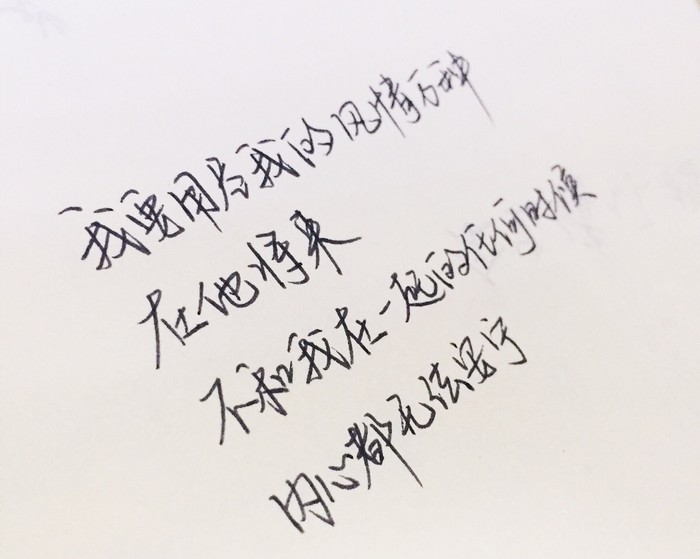 我要用尽我的风情万种
在他将来
不和我在一起的任何时候
内心都无法安宁